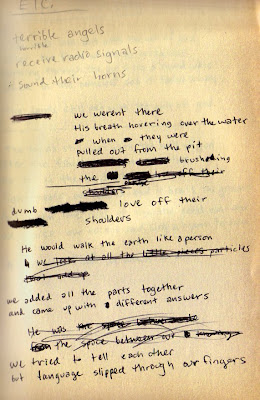 ETC.
terrible angels
horrible
receive radio signals
sound their horns
we werent there
His breath hovering over the water
when they were
pulled out from the pit
brushing
the love off their
shoulders
dumb love off their
shoulders
He would walk the earth like a person
& we at all the little pieces particles
that add up
we added all the parts together
and came up with different answers
He was the space between
the space between our
we tried to tell each other
but language slipped through our fingers